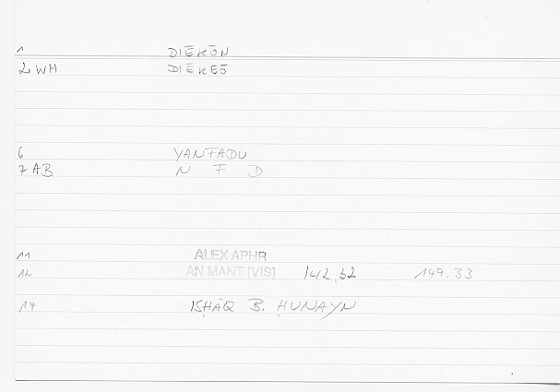 1 DIĒKŌN
2 WM DIĒKEŌ
6 YANFADU
7 AB N F D
11 ALEX APHR
12 AN MANT [VIS] 142,32 149.33
14 ISḤĀQ B. ḤUNAYN